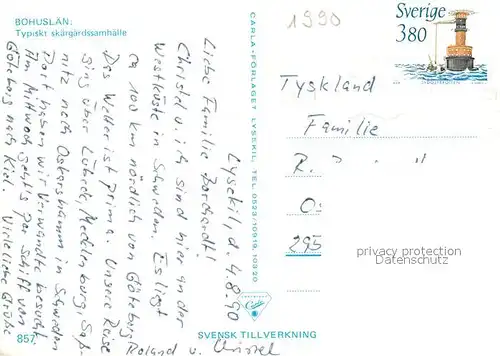 BOHUSLÄN:
Typiskt skärgårdssamhälle
1990
Sverige
380
Lysekil, d. 4.8.90
Liebe Familie Borchardt!
Christel u. ich sind hier an der
Westküste in Schweden. Es liegt
ca 100 km nördlich von Göteborg.
Das Wetter ist prima. Unsere Reise
ging über Lübeck, Mecklenburg, Saß-
nitz nach Oskarshamn in Schweden
Dort haben wir Verwandte besucht
Am Mittwoch geht's per Schiff von
Göteborg nach Kiel. Viele liebe Grüße
Roland u. Christel
CARLA-FÖRLAGET LYSEKIL, TEL. 0523/10919, 10320
Carla
Tyskland
Familie
R.
295
privacy protection
Datenschutz
857
SVENSK TILLVERKNING